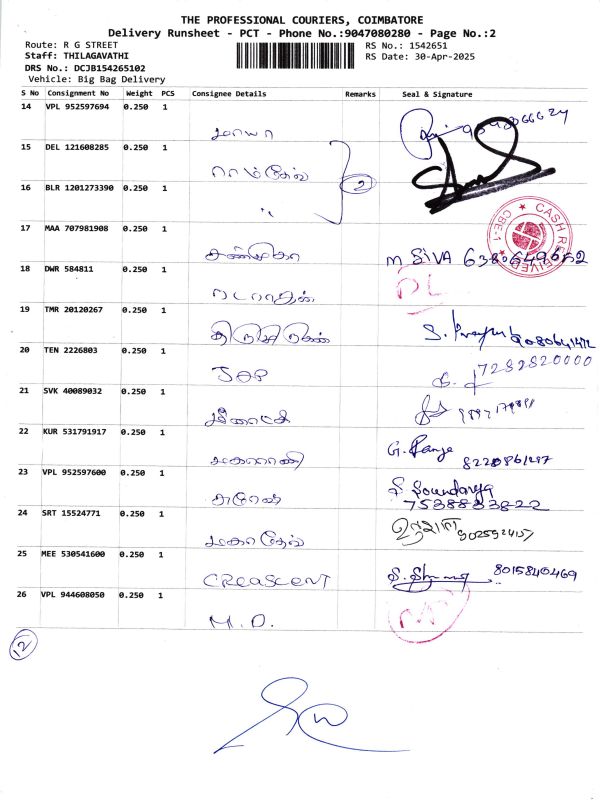 THE PROFESSIONAL COURIERS, COIMBATORE
Delivery Runsheet - PCT - Phone No.:9047080280 - Page No.:2
Route: R G STREET
RS No.: 1542651
Staff: THILAGAVATHI
RS Date: 30-Apr-2025
DRS No.: DCJB154265102
Vehicle: Big Bag Delivery
S No Consignment No Weight PCS Consignee Details Remarks Seal & Signature
14 VPL 952597694 0.250 1
15 DEL 121608285 0.250 1
ராம்தேவ்
2
16 BLR 1201273390 0.250 1
〃
17 MAA 707981908 0.250 1
CASH RECEIVED ★ CBE-1 ★
சண்முகா M SIVA
18 DWR 584811 0.250 1
நடராஜன்
19 TMR 20120267 0.250 1
20 TEN 2226803 0.250 1
7282820000
21 SVK 40089032 0.250 1
மீனாட்சி
22 KUR 531791917 0.250 1
மகாராணி G.
23 VPL 952597600 0.250 1
S Soundarya
7538833822
24 SRT 15524771 0.250 1
மகாதேவ்
25 MEE 530541600 0.250 1
CREASCENT 8015840469
26 VPL 944608050 0.250 1
M.D.
12